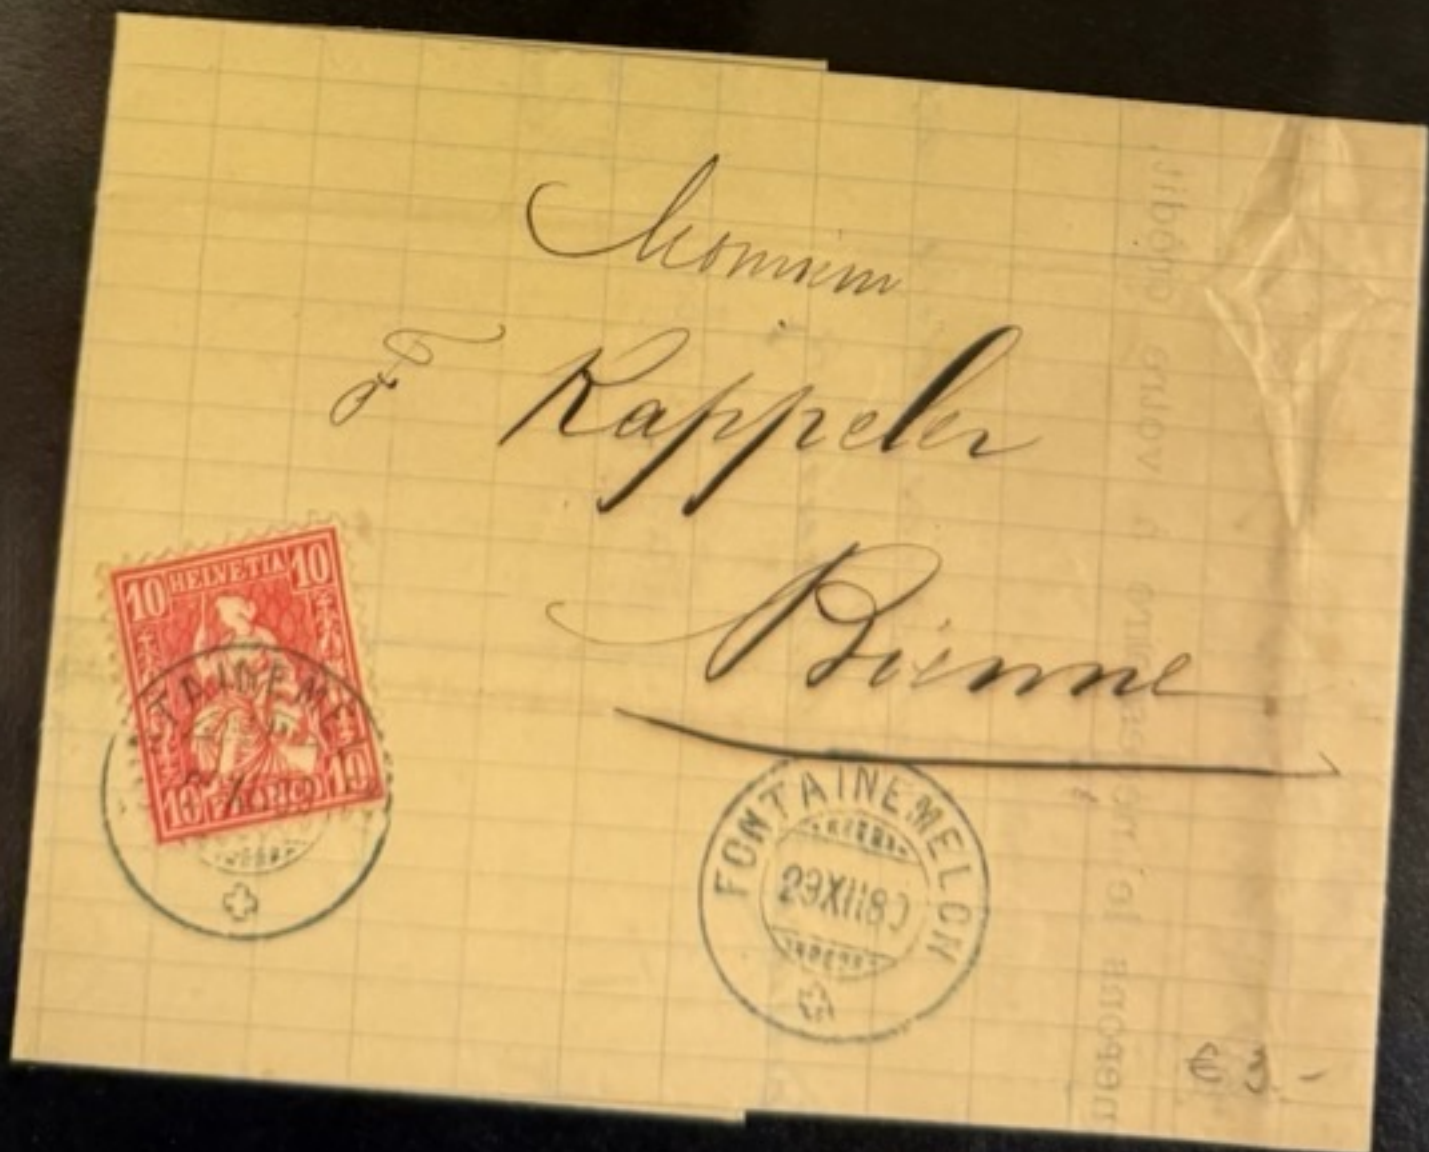 Monsieur
F Kappeler
Bienne
10 HELVETIA 10
10 FRANCO 10
TAINEMEL
FONTAINEMELON
29 XII 80
€ 3.-